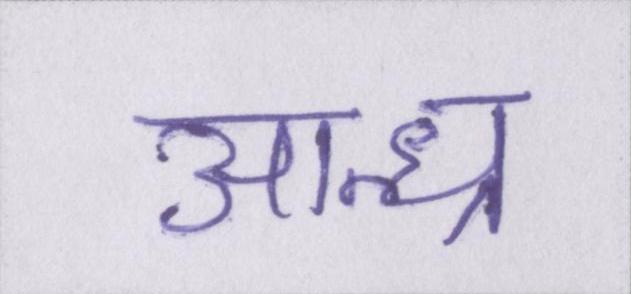 आन्ध्र